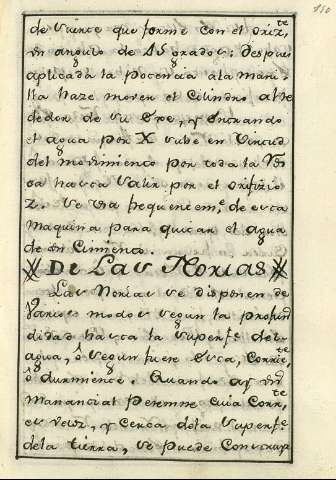 de suerte que forme con el Orizte
un angulo de 45 grados: despues
aplicada la Potencia a la Mani-
lla haze mover el Cilindro alre
dedor de su Exe, y Entrando
el agua por X sube en Virtud
del movimiento por toda la
sa hasta salir por el orifizio
Z. Se usa frequentemte. de esta
Maquina para quitar el agua
de un Cimiento.
De Las Norias
Las Norias se disponen de
varios modos segun la profun
didad hasta la superfe. del
agua, ò segun fuere Esta, Corrte
ò durmiente. Quando ay un
Manantial Peremne cuia Corrte
es veloz, y cerca de la superfe
de la tierra, se puede Construir